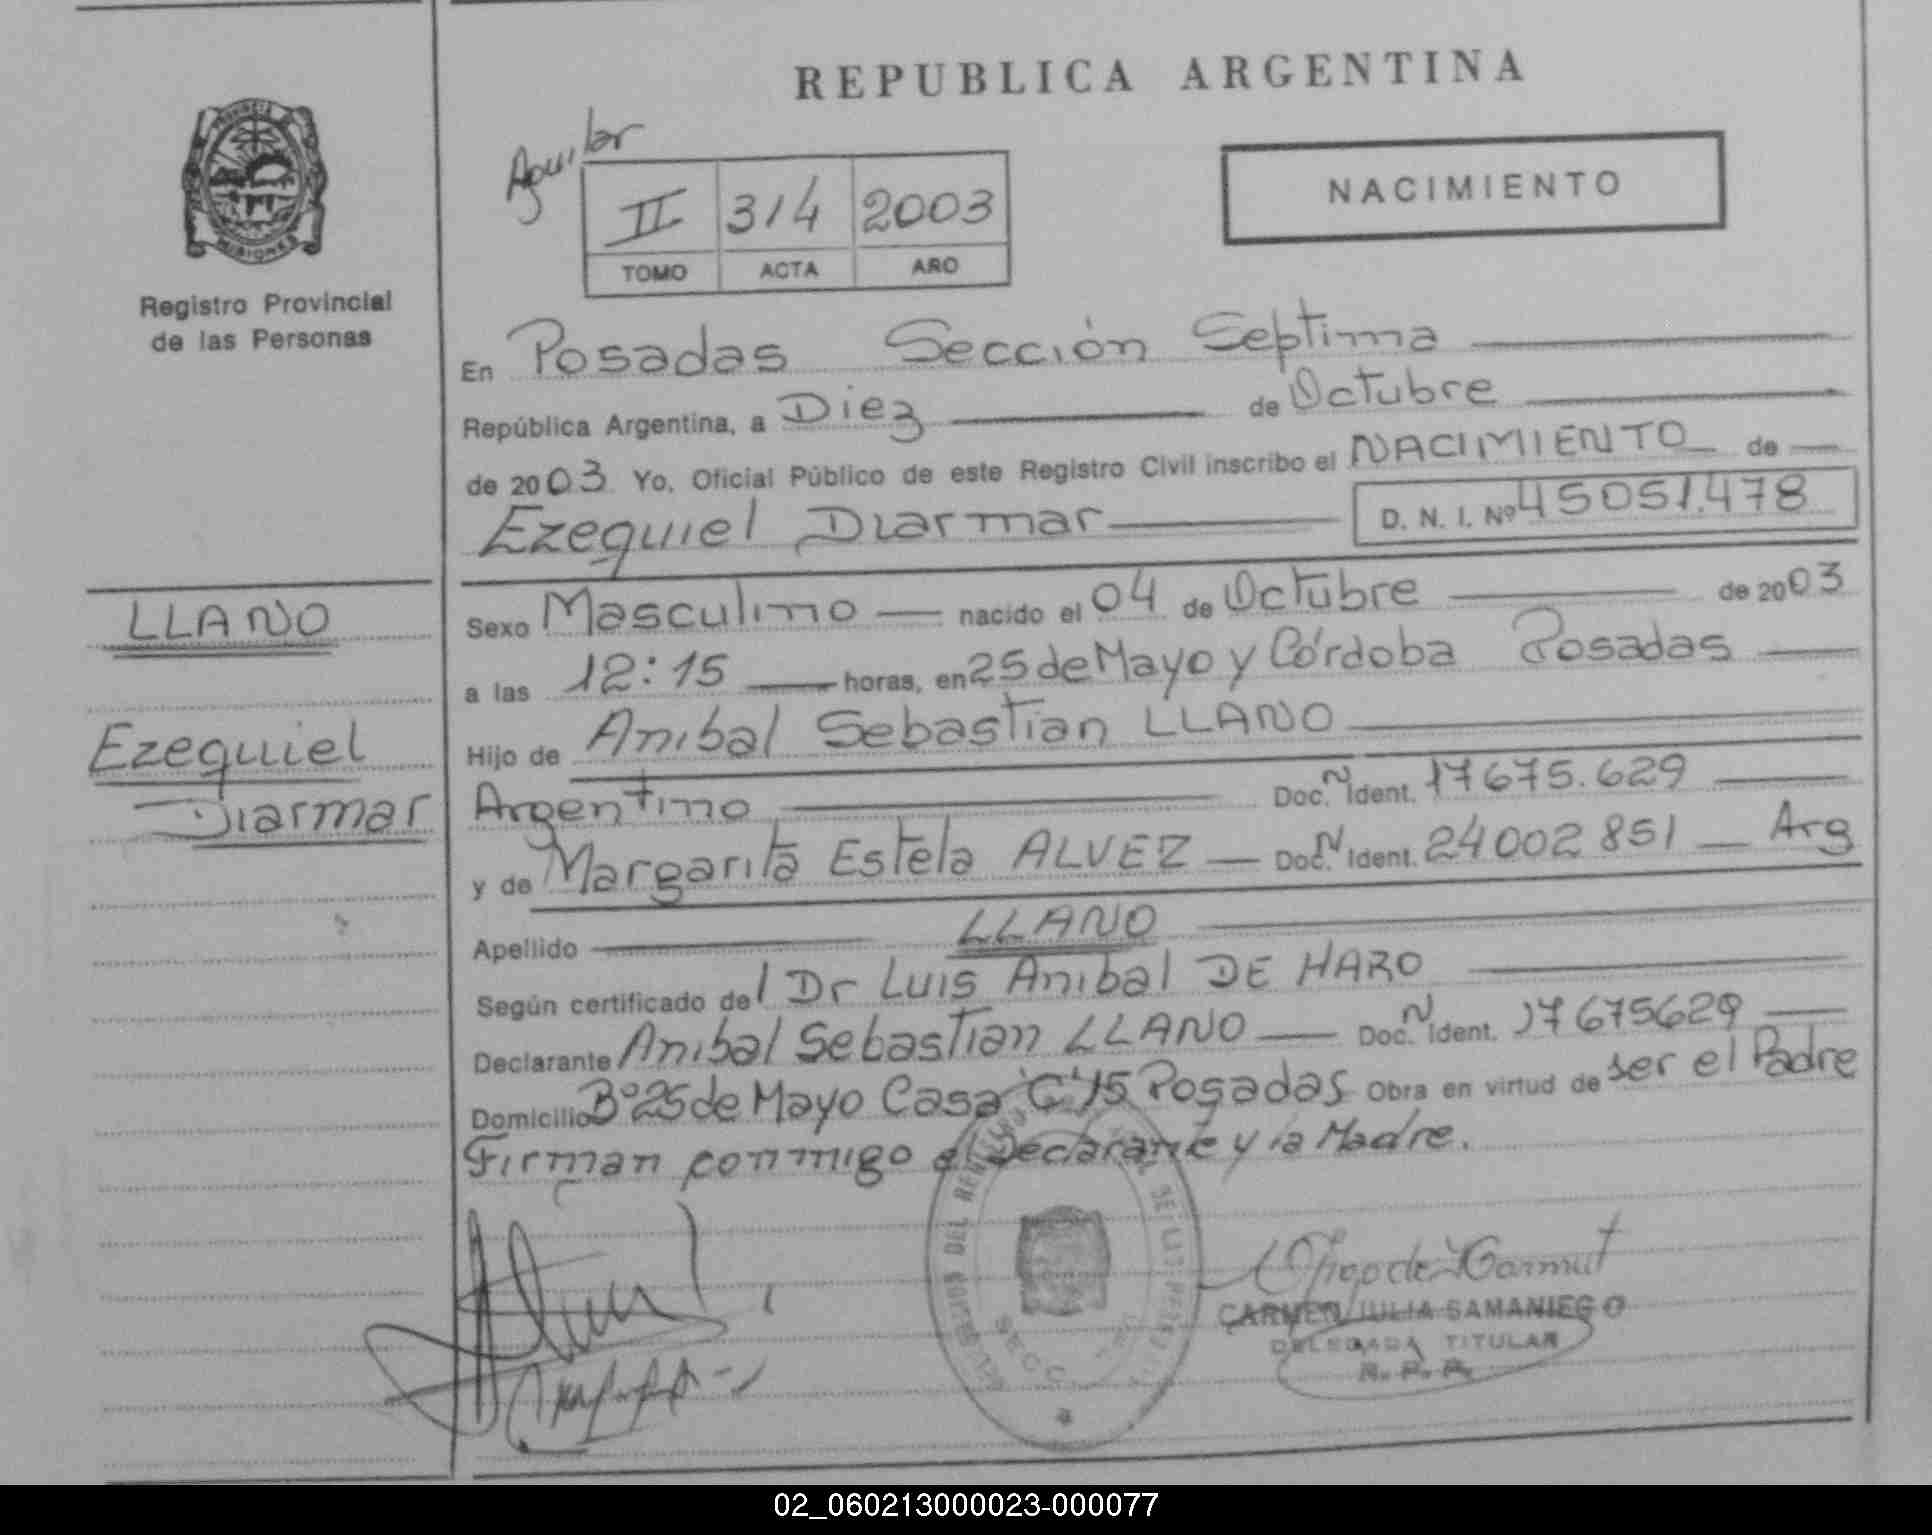 REPUBLICA ARGENTINA
PROVINCIA
MISIONES
Registro Provincial
de las Personas
Aguilar
II 314 2003
TOMO ACTA AÑO
NACIMIENTO
En Posadas Sección Septima
República Argentina, a Diez de Octubre
de 2003 Yo, Oficial Público de este Registro Civil inscribo el NACIMIENTO de
Ezequiel Diarmar D. N. I. Nº 45051.478
LLANO
Ezequiel
Diarmar
Sexo Masculino nacido el 04 de Octubre de 2003
a las 12:15 horas, en 25 de Mayo y Córdoba Posadas
Hijo de Anibal Sebastian LLANO
Argentino Doc. N Ident. 17675.629
y de Margarita Estela ALVEZ Doc. N Ident. 24002851 Arg
Apellido LLANO
Según certificado del Dr Luis Anibal DE HARO
Declarante Anibal Sebastian LLANO Doc. N Ident. 17675629
Domicilio Bº 25 de Mayo Casa "C" 15 Posadas Obra en virtud de ser el Padre
Firman conmigo el Declarante y la Madre.
CARMEN JULIA SAMANIEGO
DELEGADA TITULAR
R. P. P.
02_060213000023-000077